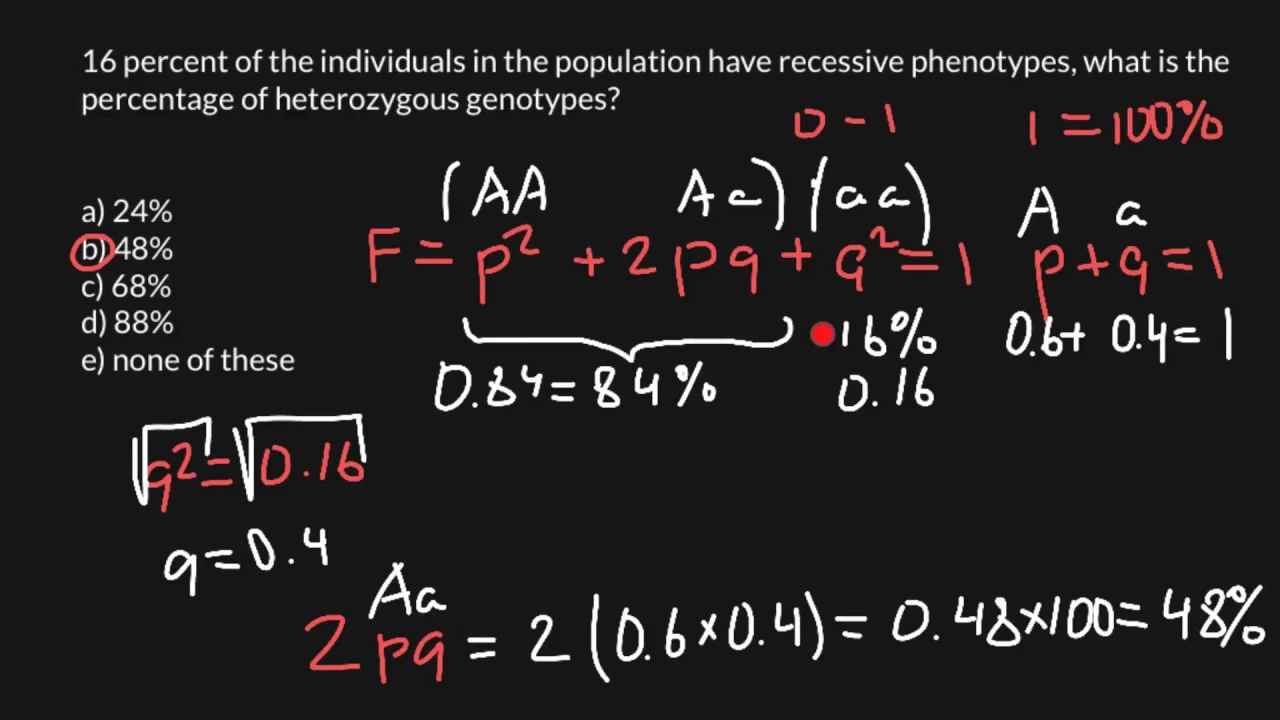 16 percent of the individuals in the population have recessive phenotypes, what is the
percentage of heterozygous genotypes?
0 - 1
1 = 100%
(AA Aa) (aa)
A a
a) 24%
b) 48%
c) 68%
d) 88%
e) none of these
F = p² + 2pq + q² = 1
p + q = 1
16%
0.6 + 0.4 = 1
0.84 = 84%
0.16
√q² = √0.16
q = 0.4
Aa
2pq = 2(0.6×0.4) = 0.48×100 = 48%